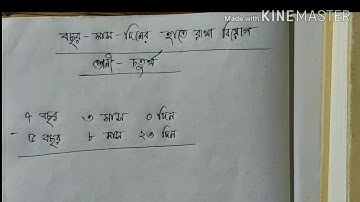 Made with KINEMASTER
বছর - মাস - দিনের হাতে রাখা বিয়োগ
শ্রেনী - চতুর্থ
৭ বছর ৩ মাস ০ দিন
- ৫ বছর ৮ মাস ২৩ দিন